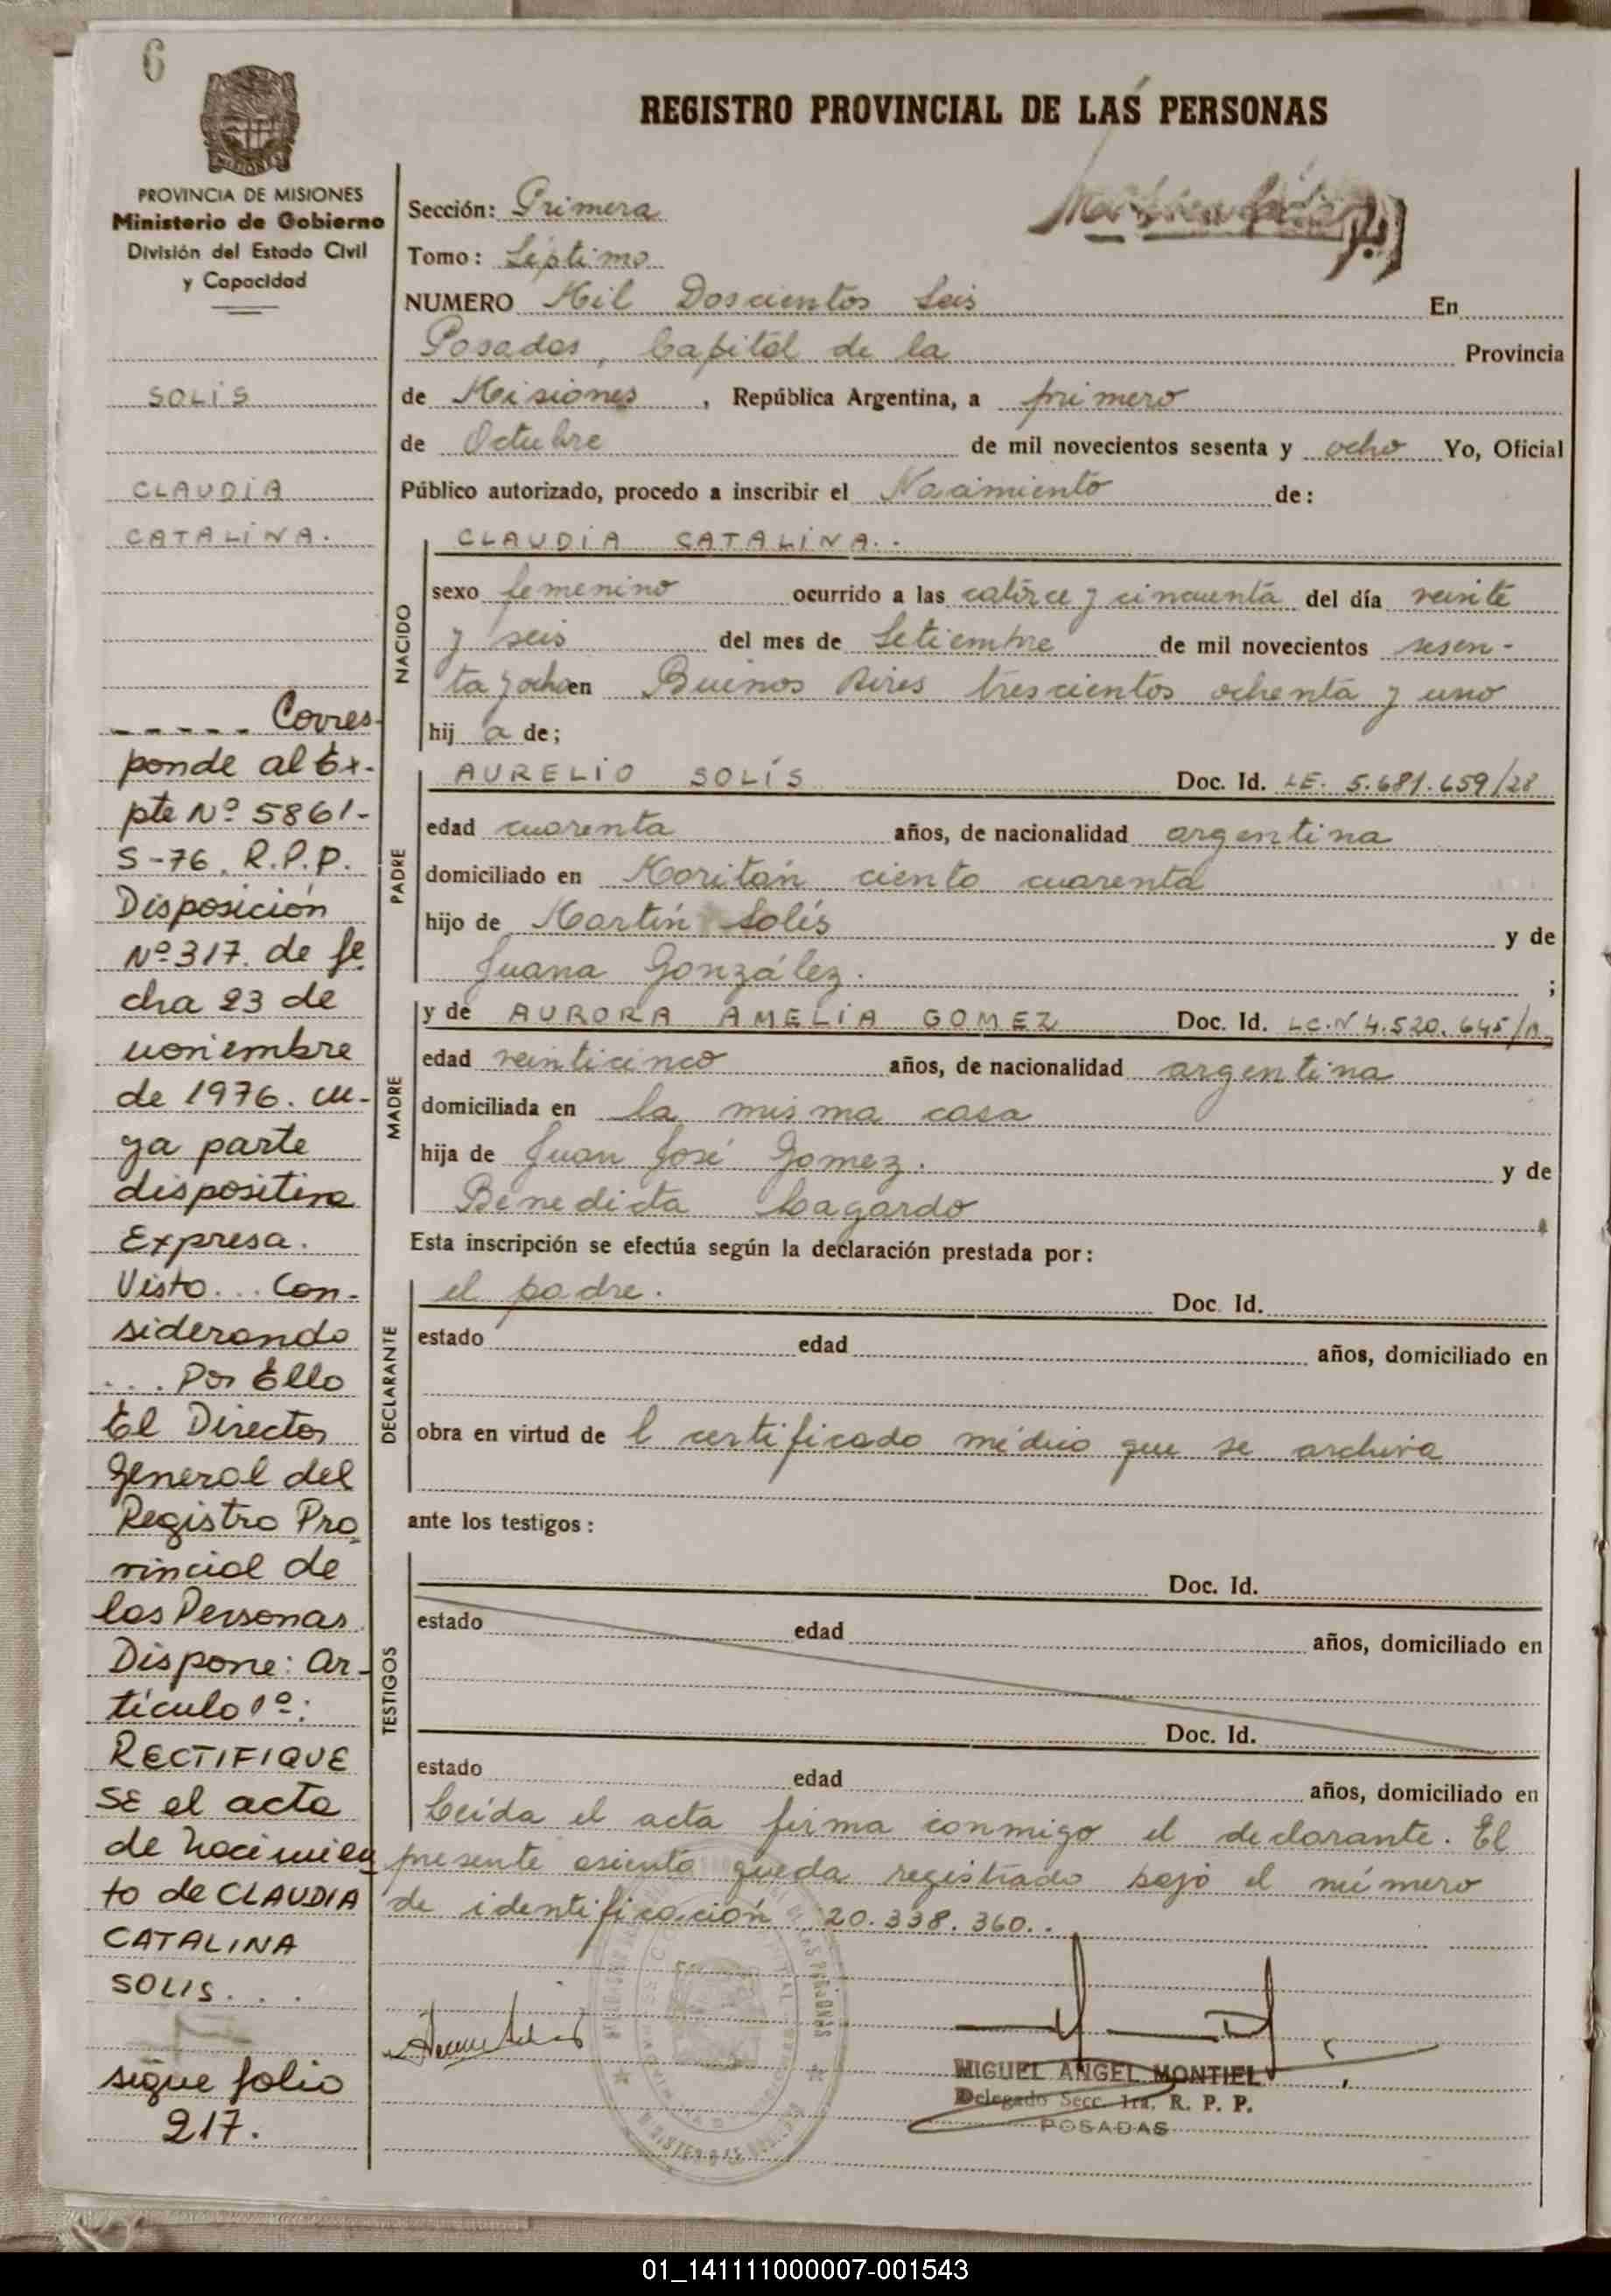 6
MISIONES
PROVINCIA DE MISIONES
Ministerio de Gobierno
División del Estado Civil
y Capacidad
SOLÍS
CLAUDIA
CATALINA.
----- Corres-
ponde al Ex-
pte Nº 5861-
S-76. R.P.P.
Disposición
Nº 317. de fe
cha 23 de
noviembre
de 1976. cu-
ya parte
dispositiva
Expresa.
Visto... Con-
siderando
... Por Ello
El Director
General del
Registro Pro
vincial de
las Personas
Dispone: Ar-
tículo 1º:
RECTIFIQUE
SE el acta
de Nacimien
to de CLAUDIA
CATALINA
SOLIS...
sigue folio
217.
REGISTRO PROVINCIAL DE LAS PERSONAS
Sección: Primera
Tomo: Séptimo
NUMERO Mil Doscientos Seis En
Posadas, Capital de la Provincia
de Misiones, República Argentina, a primero
de Octubre de mil novecientos sesenta y ocho Yo, Oficial
Público autorizado, procedo a inscribir el Nacimiento de:
NACIDO
CLAUDIA CATALINA..
sexo femenino ocurrido a las catorce y cincuenta del día veinte
y seis del mes de Setiembre de mil novecientos sesen-
ta y ocho en Buenos Aires trescientos ochenta y uno
hij a de;
PADRE
AURELIO SOLÍS Doc. Id. LE. 5.681.659/28
edad cuarenta años, de nacionalidad argentina
domiciliado en Moritán ciento cuarenta
hijo de Martín Solís y de
Juana González. ;
MADRE
y de AURORA AMELIA GOMEZ Doc. Id. LC.Nº 4.520.645/
edad veinticinco años, de nacionalidad argentina
domiciliada en la misma casa
hija de Juan José Gomez. y de
Benedicta
Esta inscripción se efectúa según la declaración prestada por:
DECLARANTE
el padre. Doc. Id.
estado edad años, domiciliado en
obra en virtud de l certificado médico que se archiva
ante los testigos:
TESTIGOS
Doc. Id.
estado edad años, domiciliado en
Doc. Id.
estado edad años, domiciliado en
Leída el acta firma conmigo el declarante. El
presente asiento queda registrado bajo el número
de identificación 20.338.360..
MIGUEL ANGEL MONTIEL
Delegado Secc. 1ra. R. P. P.
POSADAS
01_141111000007-001543